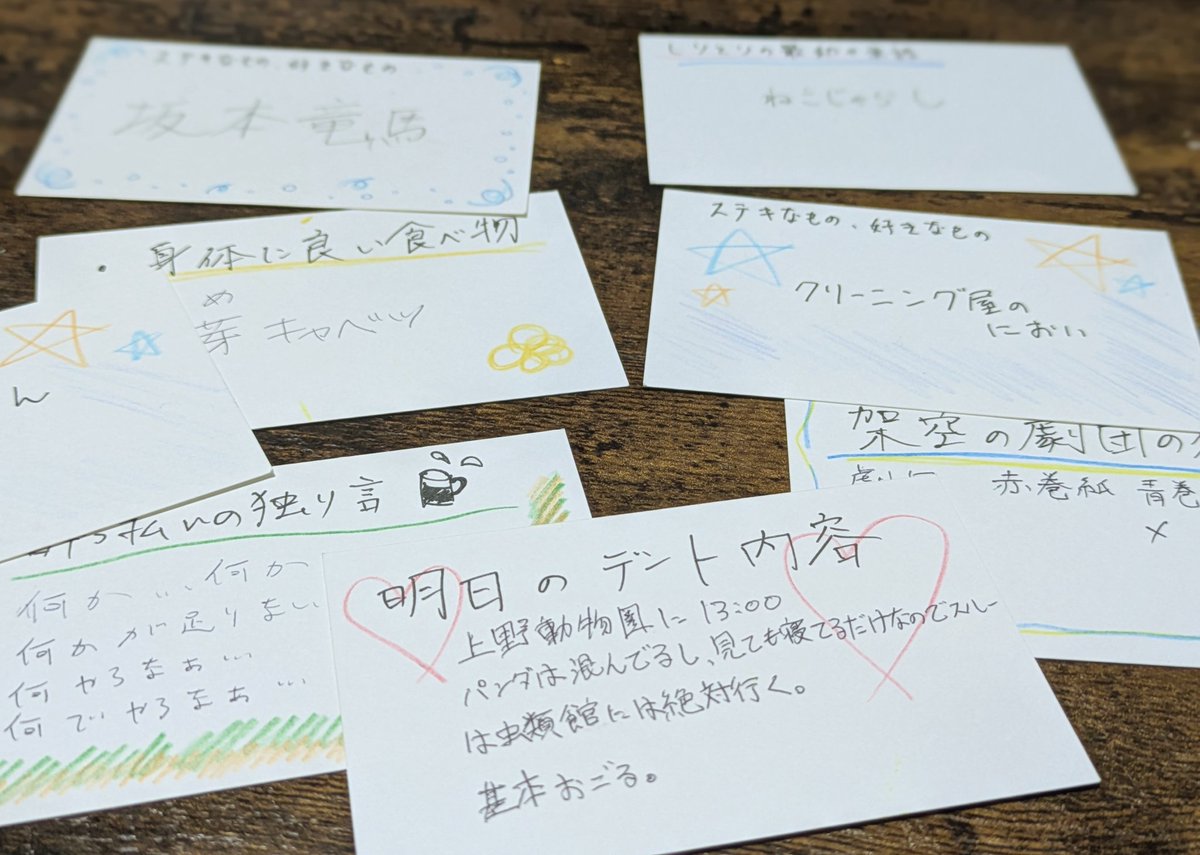 ステキなもの、好きなもの
坂本竜馬
しりとりの最初の単語
ねこじゃらし
・身体に良い食べ物
め
芽キャベツ
ステキなもの、好きなもの
クリーニング屋の
におい
ん
架空の劇団の
赤巻紙 青巻
×
の独り言
何か...何か
何かが足りない
何やろなぁ...
何でやろなぁ...
明日のデート内容
上野動物園に13:00
パンダは混んでるし、見ても寝てるだけなのでスルー
は虫類館には絶対行く。
基本おごる。